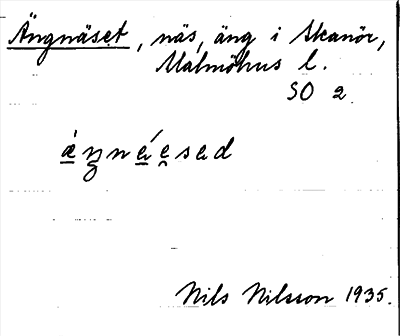 Ängnäset, näs, äng i Skanör,
Malmöhus l.
SO 2
ǽŋnǽesad
Nils Nilsson 1935.